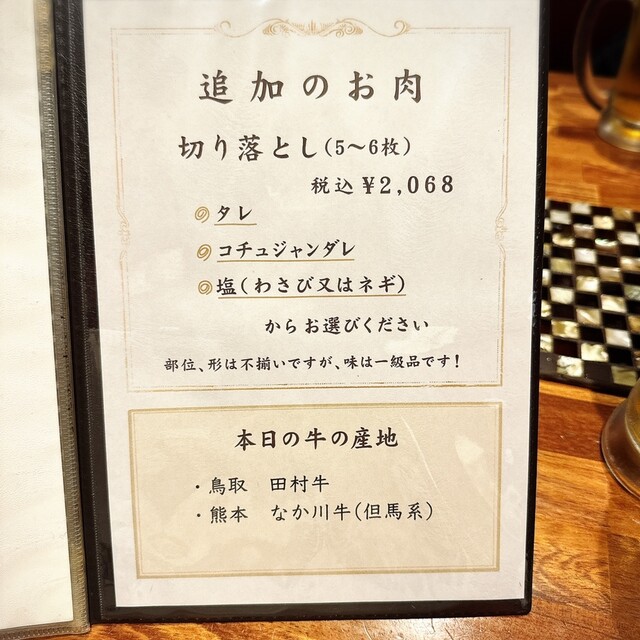 追加のお肉
切り落とし(5〜6枚)
税込 ¥2,068
タレ
コチュジャンダレ
塩(わさび又はネギ)
からお選びください
部位、形は不揃いですが、味は一級品です!
本日の牛の産地
・鳥取 田村牛
・熊本 なか川牛(但馬系)